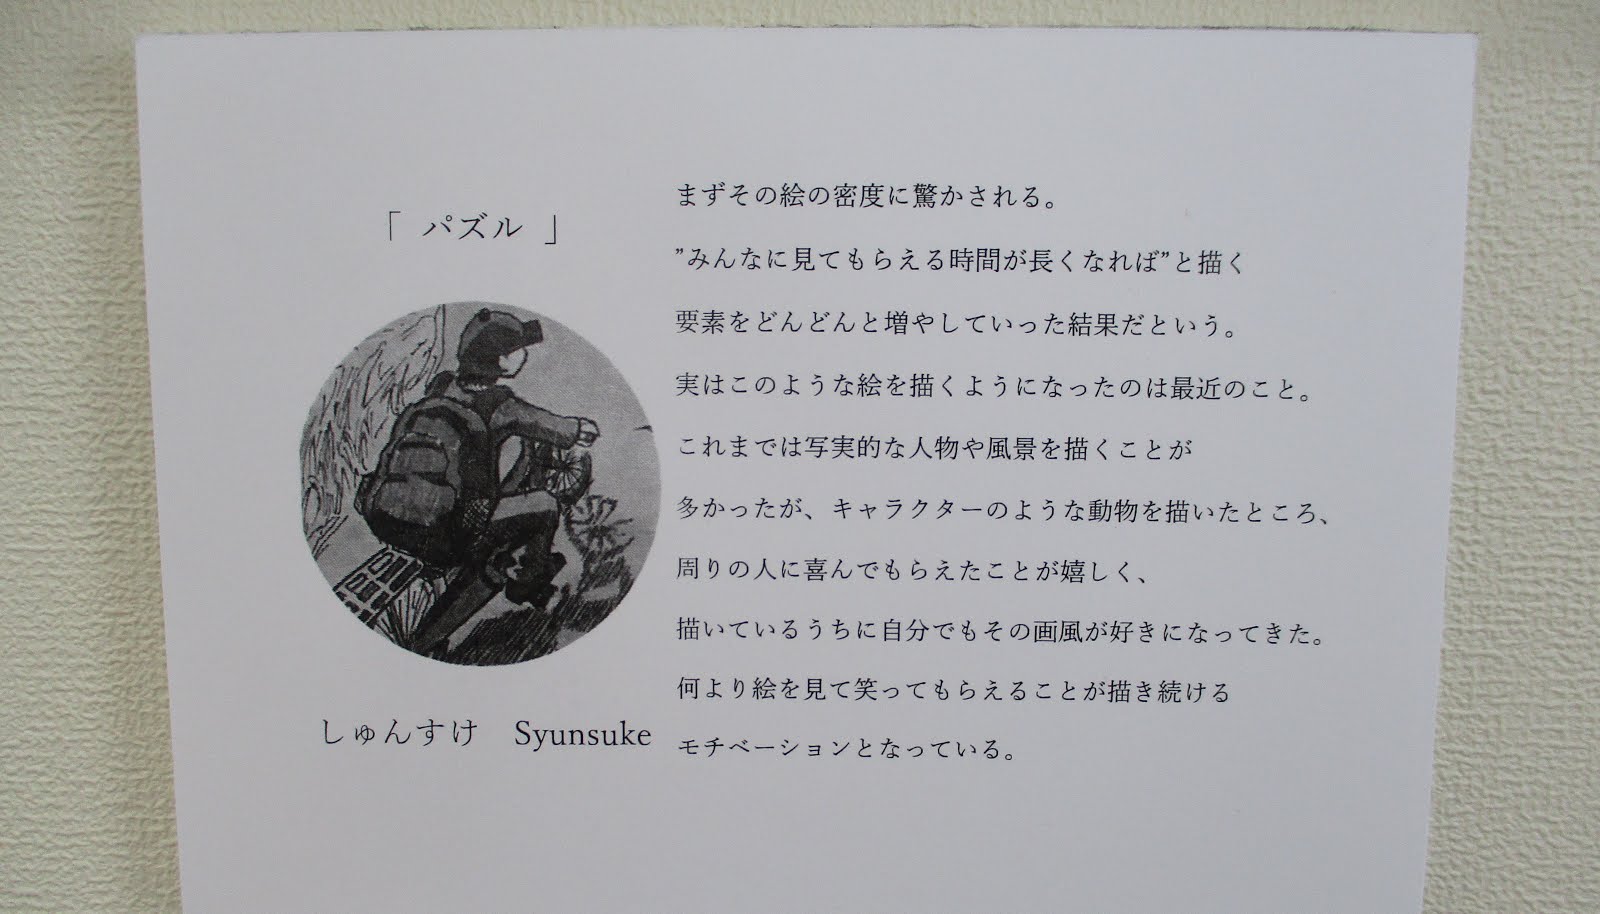 「 パズル 」
しゅんすけ　Syunsuke
まずその絵の密度に驚かされる。
”みんなに見てもらえる時間が長くなれば”と描く
要素をどんどんと増やしていった結果だという。
実はこのような絵を描くようになったのは最近のこと。
これまでは写実的な人物や風景を描くことが
多かったが、キャラクターのような動物を描いたところ、
周りの人に喜んでもらえたことが嬉しく、
描いているうちに自分でもその画風が好きになってきた。
何より絵を見て笑ってもらえることが描き続ける
モチベーションとなっている。